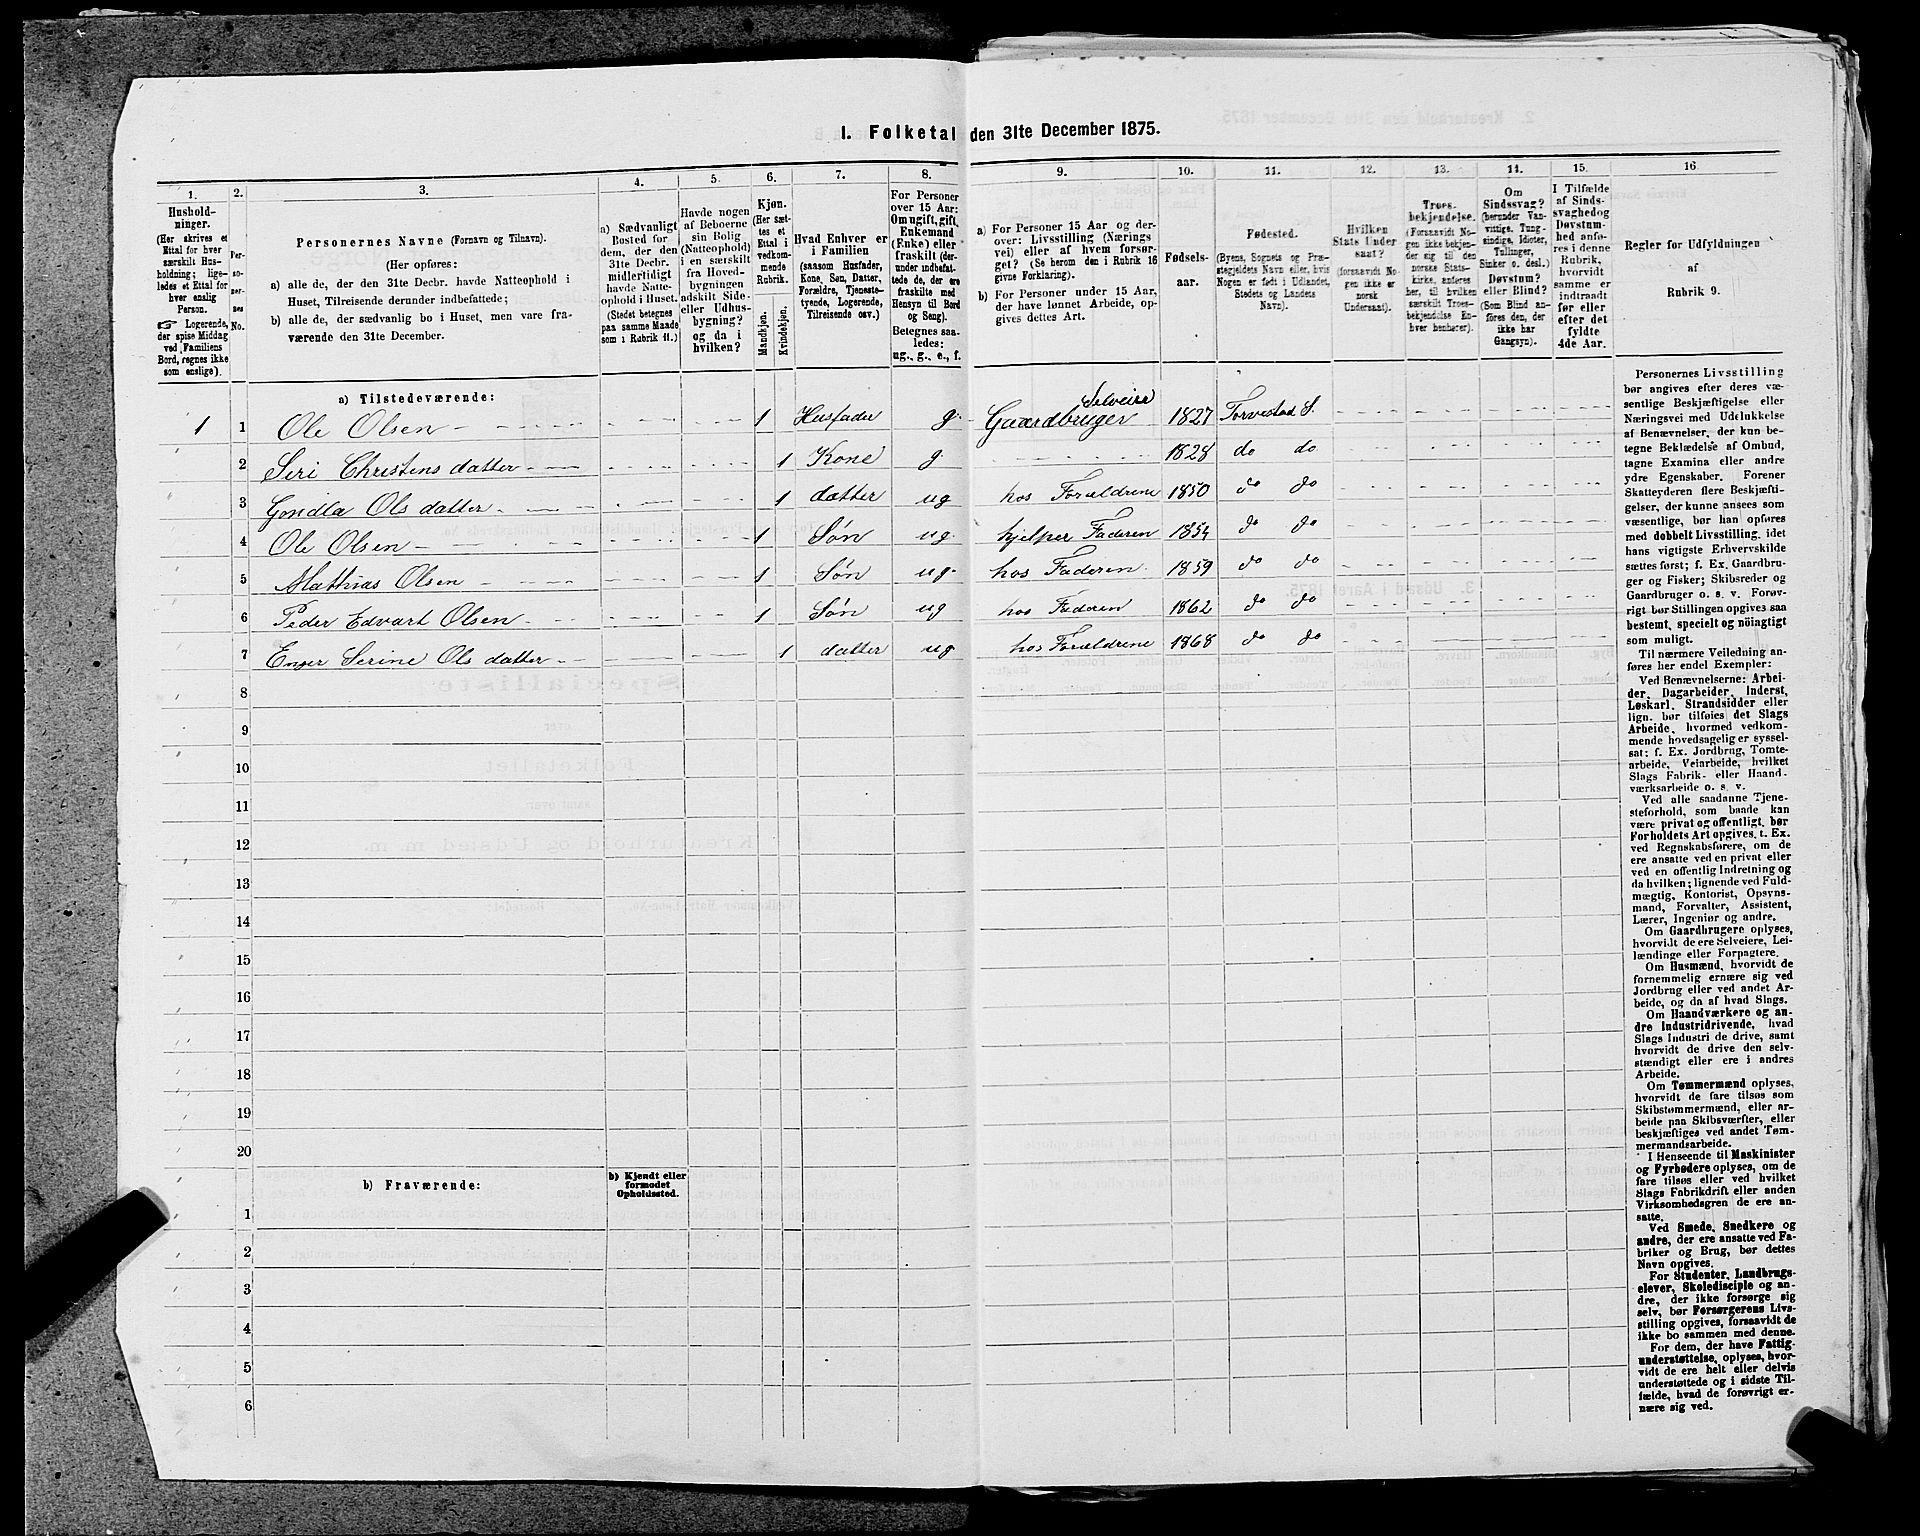 I. Folketal den 31te December 1875.
1.
2.
3.
4.
5.
6.
7.
8.
9.
10.
11.
12.
13.
14.
15.
16.
Hushold-
ninger.
(Her skrives et
Ettal for hver
særskilt Hus-
holdning; lige-
ledes et Ettal for
hver enslig
Person.
☞ Logerende,
der spise Middag
ved Familiens
Bord, regnes ikke
som enslige).
Per-
so-
ner-
nes
No.
Personernes Navne (Fornavn og Tilnavn).
(Her opføres:
a) alle de, der den 31te Decbr. havde Natteophold i
Huset, Tilreisende derunder indbefattede;
b) alle de, der sædvanlig bo i Huset, men vare fra-
værende den 31te December.
a) Sædvanligt
Bosted for
dem, der den
31te Decbr.
midlertidigt
havde Natte-
ophold i Huset.
(Stedet betegnes
paa samme Maade
som i Rubrik 11.)
Havde nogen
af Beboerne
sin Bolig
(Natteophold)
i en særskilt
fra Hoved-
bygningen
adskilt Side-
eller Udhus-
bygning?
og da i
hvilken?
Kjøn.
(Her sæt-
tes et
Ettal i
vedkom-
mende
Rubrik.
Mandkjøn.
Kvindekjøn.
Hvad Enhver er
i Familien
(saasom Husfader,
Kone, Søn, Datter,
Forældre, Tjeneste-
tyende, Logerende,
Tilreisende osv.)
For Personer
over 15 Aar:
Om ugift, gift,
Enkemand
(Enke) eller
fraskilt (der-
under indbefat-
tede de, der ere
fraskilte med
Hensyn til Bord
og Seng).
Betegnes saa-
ledes:
ug., g., e., f.
a) For Personer 15 Aar og der-
over: Livsstilling (Nærings
vei) eller af hvem forsør-
get? (Se herom den i Rubrik 16
givne Forklaring).
b) For Personer under 15 Aar,
der have lønnet Arbeide, op-
gives dettes Art.
Fødsels-
aar.
Fødested.
(Byens, Sognets og Præ-
stegjeldets Navn eller, hvis
Nogen er født i Udlandet,
Stedets og Landets
Navn).
Hvilken
Stats Under
saat?
(forsaavidt No-
gen ikke er
norsk
Undersaat).
Troes-
bekjendelse.
(Forsaavidt No-
gen ikke bekjen-
der sig til den
norske Stats-
kirke, anføres
her, til hvilken
særskilt Troes-
bekjendelse En-
hver henhører).
Om
Sindssvag?
(herunder Van-
vittige, Tung-
sindige, Idioter,
Tullinger,
Sinker o. desl.)
Døvstum?
eller Blind?
(Som Blind an-
føres den, der
ikke har
Gangsyn).
I Tilfælde
af Sinds-
svaghed og
Døvstum-
hed anfø-
res i denne
Rubrik,
hvorvidt
samme er
indtraadt
før eller
efter det
fyldte
4de Aar.
Regler for Udfyldningen
af
Rubrik 9.
a) Tilstedeværende:
1 1 Ole Olsen 1 Husfader g. Gaardbruger Selveier 1827 Torvestad S.
2 Seri Christens datter 1 Kone g. 1828 do do
3 Gondla Ols datter 1 datter ug hos Forældrene 1850 do do
4 Ole Olsen 1 Søn ug. hjelper Faderen 1854 do do
5 Matthias Olsen 1 Søn ug. hos Faderen 1859 do do
6 Peder Edvart Olsen 1 Søn ug hos Faderen 1862 do do
7 Enger Serine Ols datter 1 datter ug hos Forældrene 1868 do do
8
9
10
11
12
13
14
15
16
17
18
19
20
b) Fraværende:
b) Kjendt eller
formodet
Opholdssted.
1
2
3
4
5
6
Personernes Livsstilling
bør angives efter deres væ-
sentlige Beskjæftigelse eller
Næringsvei med Udelukkelse
af Benævnelser, der kun be-
tegne Beklædelse af Ombud,
tagne Examina eller andre
ydre Egenskaber. Forener
Skatteyderen flere Beskjæfti-
gelser, der kunne ansees som
væsentlige, bør han opføres
med dobbelt Livsstilling, idet
hans vigtigste Erhvervskilde
sættes først; f. Ex. Gaardbru-
ger og Fisker; Skibsreder og
Gaardbruger o. s. v. Forøv-
rigt bør Stillingen opgives saa
bestemt, specielt og nöiagtigt
som muligt.
Til nærmere Veiledning an-
føres her endel Exempler:
Ved Benævnelserne: Arbei-
der, Dagarbeider, Inderst,
Løskarl, Strandsidder eller
lign. bør tilføies det Slags
Arbeide, hvormed vedkom-
mende hovedsagelig er syssel-
sat; f. Ex. Jordbrug, Tomte-
arbeide, Veiarbeide, hvilket
Slags Fabrik- eller Haand-
værksarbeide o. s. v.
Ved alle saadanne Tjene-
steforhold, som baade kan
være privat og offentligt, bør
Forholdets Art opgives, t. Ex.
ved Regnskabsførere, om de
ere ansatte ved en privat eller
ved en offentlig Indretning og
da hvilken; lignende ved Fuld-
mægtig, Kontorist, Opsyns-
mand, Forvalter, Assistent,
Lærer, Ingeniør og andre.
Om Gaardbrugere oplyses,
hvorvidt de ere Selveiere, Lei-
lændinge eller Forpagtere.
Om Husmænd, hvorvidt de
fornemmelig ernære sig ved
Jordbrug eller ved andet Ar-
beide, og da af hvad Slags.
Om Haandværkere og an-
dre Industridrivende, hvad
Slags Industri de drive, samt
hvorvidt de drive den selv-
stændigt eller ere i andres
Arbeide.
Om Tømmermænd oplyses,
hvorvidt de fare tilsøs som
Skibstømmermænd, eller ar-
beide paa Skibsværfter, eller
beskjæftiges ved andet Tøm-
mermandsarbeide.
I Henseende til Maskinister
og Fyrbødere oplyses, om de
fare tilsøs eller ved hvilket
Slags Fabrikdrift eller anden
Virksomhedsgren de ere an-
satte.
Ved Smede, Snedkere og
andre, der ere ansatte ved Fa-
briker og Brug, bør dettes
Navn opgives.
For Studenter, Landbrugs-
elever, Skoledisciple og an-
dre, der ikke forsørge sig
selv, bør Forsørgerens Livs-
stilling opgives, forsaavidt de
ikke bo sammen med denne.
For dem, der have Fattig-
understøttelse, oplyses, hvor-
vidt de ere helt eller delvis
understøttede og i sidste Til-
fælde, hvad de forøvrigt er-
nære sig ved.